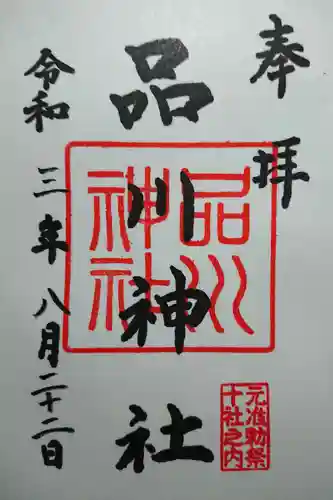 奉拝
品川神社
品川神社
元准勅祭
十社之内
令和三年八月二十二日